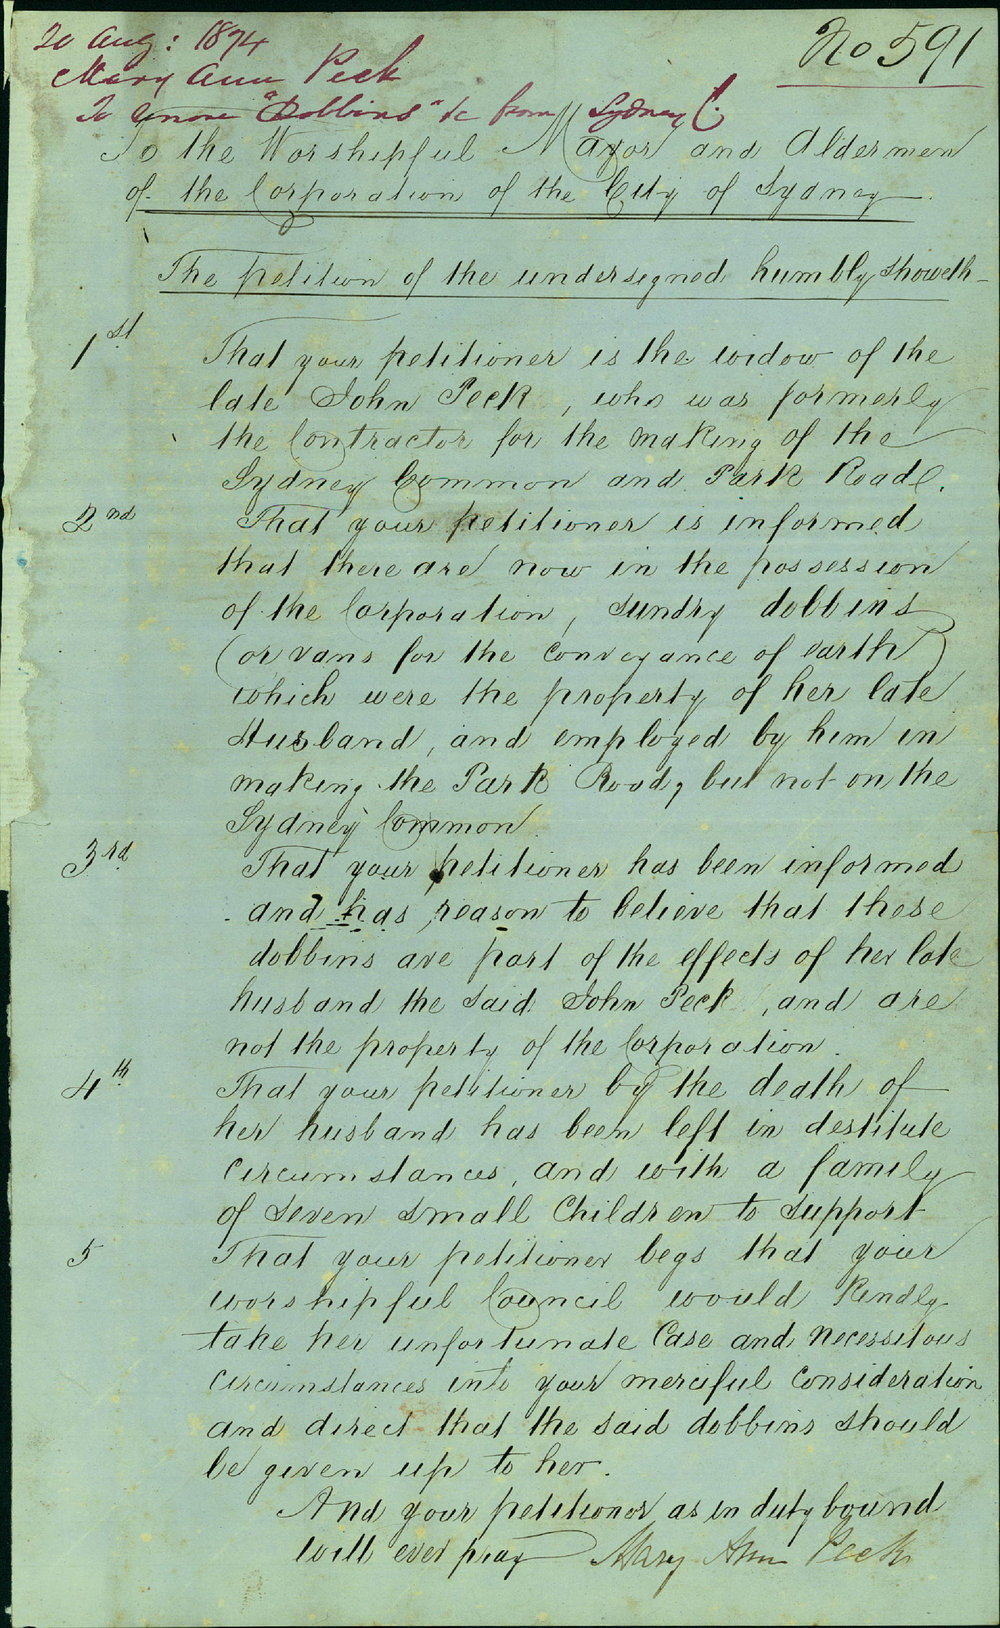 20 Aug: 1874
Mary Ann Peck
To remove "Dobbins" &c from Sydney C.
No 591
To the Worshipful Mayor and Aldermen
of the Corporation of the City of Sydney.
The petition of the undersigned humbly Showeth -
1st That your petitioner is the widow of the
late John Peck, who was formerly
the Contractor for the making of the
Sydney Common and Park Road.
2nd That your petitioner is informed
that there are now in the possession
of the Corporation, sundry dobbins
(or vans for the conveyance of earth)
which were the property of her late
Husband, and employed by him in
making the Park Road, but not on the
Sydney Common.
3rd That your petitioner has been informed
and has reason to believe that these
dobbins are part of the effects of her late
husband the said John Peck, and are
not the property of the Corporation.
4th That your petitioner by the death of
her husband has been left in destitute
circumstances, and with a family
of seven small Children to support
5 That your petitioner begs that your
worshipful Council would Kindly
take her unfortunate Case and necessitous
circumstances into your merciful Consideration
and direct that the said dobbins should
be given up to her.
And your petitioner as in duty bound
will ever pray Mary Ann Peck